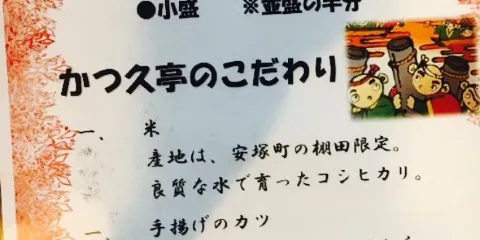 ●小盛　※並盛の半分
かつ久亭のこだわり
一、　米
産地は、安塚町の棚田限定。
良質な水で育ったコシヒカリ。
一、　手揚げのカツ